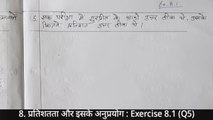 5. एक परीक्षा में सुरजीत के आधे उत्तर ठीक थे, उसके
कितने प्रतिशत उत्तर ठीक थे ।
8. प्रतिशतता और इसके अनुप्रयोग : Exercise 8.1 (Q5)